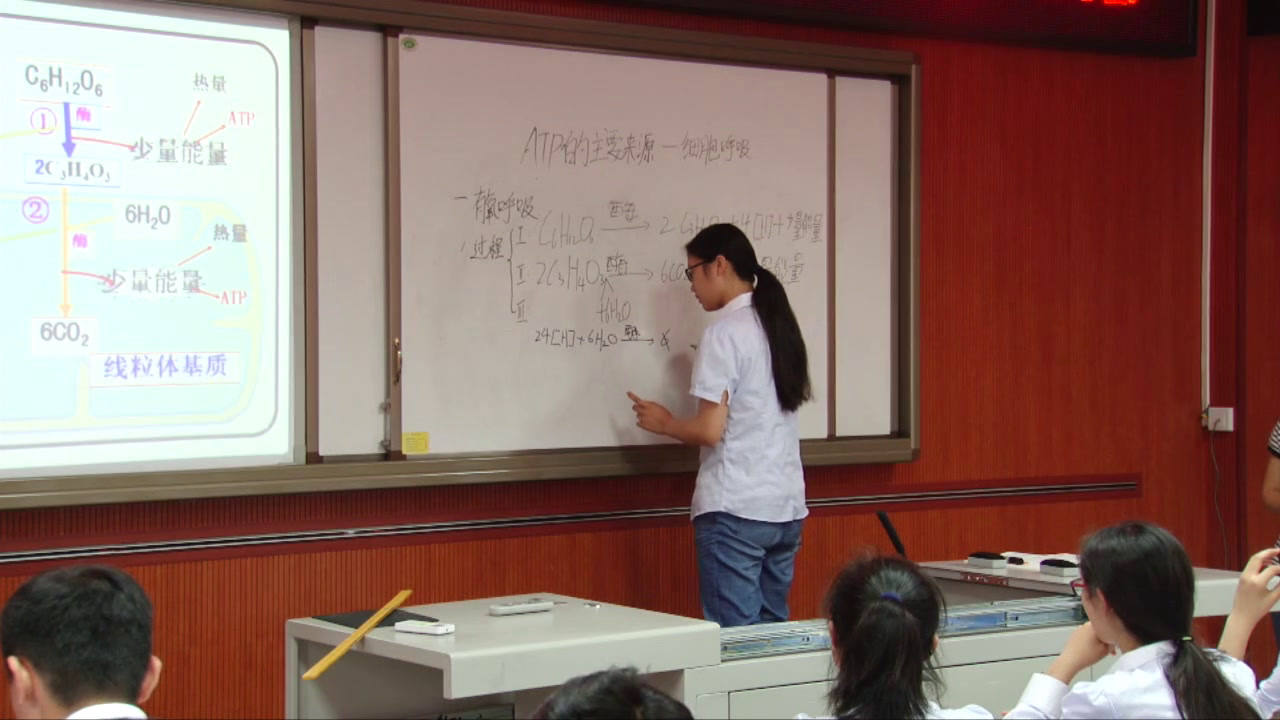 C₆H₁₂O₆
热量
酶
①
ATP
少量能量
2C₃H₄O₃
②
6H₂O
热量
酶
少量能量
ATP
6CO₂
线粒体基质
ATP的主要来源—细胞呼吸
一有氧呼吸
1过程
I C₆H₁₂O₆ 酶 → 2 C₃H₄O₃ +4 [H]+少量能量
II 2C₃H₄O₃ 酶 → 6CO₂
+6H₂O
III
24[H]+6H₂O 酶 →